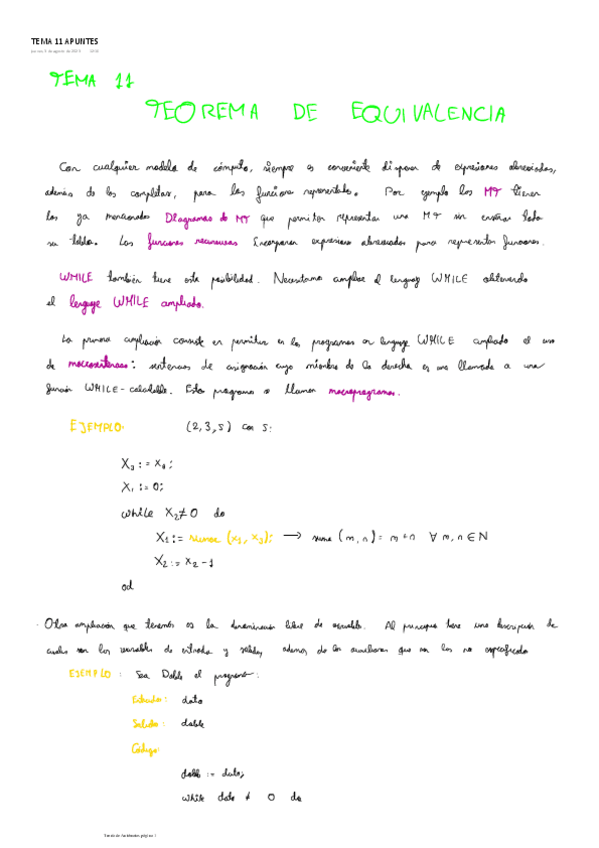 TEMA 11 APUNTES
TEMA 11
TEOREMA DE EQUIVALENCIA
Con cualquier modelo de cómputo, siempre es conveniente disponer de expresiones abreviadas,
además de las completas, para las funciones representadas. Por ejemplo las MT tienen
los ya mencionados Diagramas de MT que permiten representar una MT sin enseñar toda
su tabla. Las funciones recursivas incorporan expresiones abreviadas para representar funciones.
WHILE también tiene esta posibilidad. Necesitamos ampliar el lenguaje WHILE obteniendo
el lenguaje WHILE ampliado.
La primera ampliación consiste en permitir en los programas en lenguaje WHILE ampliado el uso
de macrosentencias: sentencias de asignación cuyo miembro de la derecha es una llamada a una
función WHILE-calculable. Estos programas se llaman macroprogramas.
EJEMPLO: (2,3,s) con s:
X₃ := X₄;
X₁ := 0;
while X₂ ≠ 0 do
X₁ := suma (X₁, X₃); → suma (m,n) = m+n ∀ m,n ∈ N
X₂ := X₂ - 1
od
· Otra ampliación que tenemos es la denominación libre de variables. Al principio tiene una descripción de
cuales son las variables de entrada y salida, además de las auxiliares que son las no especificadas
EJEMPLO: Sea Doble el programa:
Entrada: dato
Salida: doble
Código:
doble := dato;
while dato ≠ 0 do